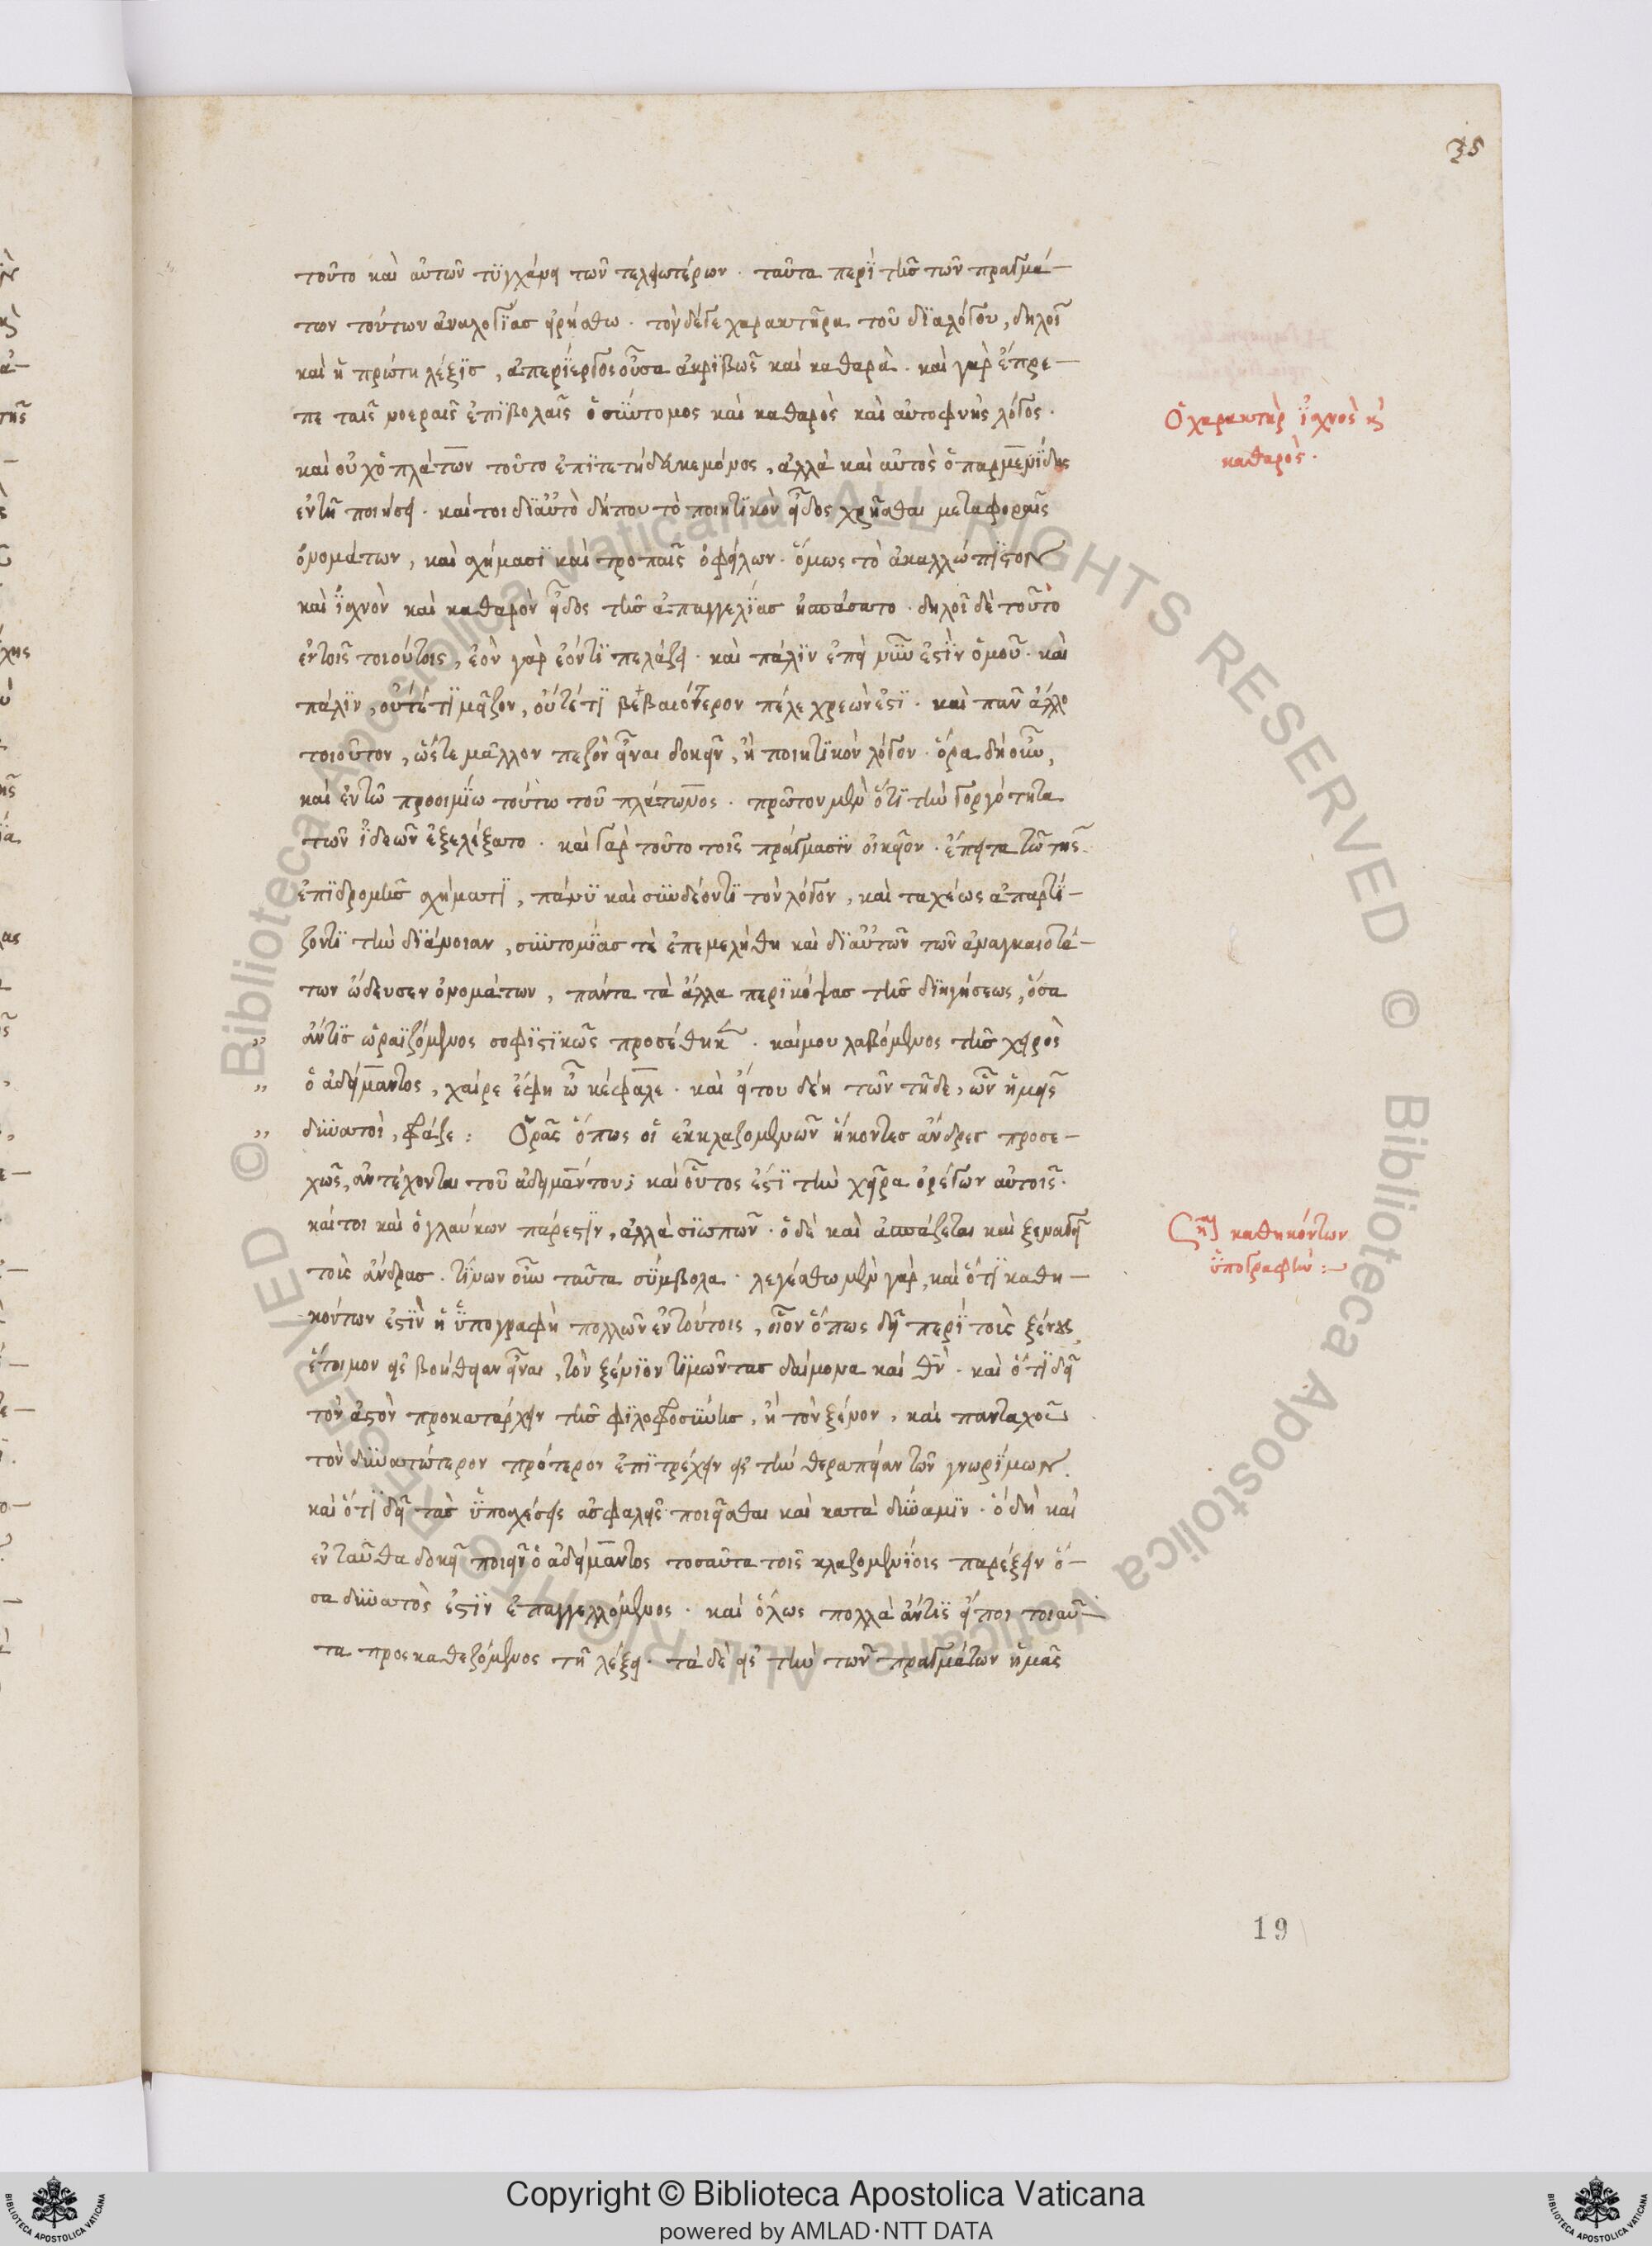 35
τοῦτο καὶ αὐτῶν τϋγχάνει τῶν τελειωτέρων · ταῦτα περῒ τῆσ τῶν πραγμά–
των τούτων ἀναλογΐασ εἰρήσθω · τὸν δέ γε χαρακτῆρα τοῦ δϊαλόγου, δηλοῖ
καὶ ἡ πρώτη λέξϊσ, ἀπερΐεργος οὖσα ἀκρϊβῶς καὶ καθαρὰ · καὶ γὰρ ἔπρε–
πε ταῖς νοεραῖς ἐπϊβολαῖς ὁ σύντομος καὶ καθαρὸς καὶ αὐτοφυὴς λόγος ·
Ὁ χαρακτὴρ ἰσχνὸς κὶ
καθαρὸς ·
καὶ οὐχ ὁ πλάτων τοῦτο ἐπϊτετήδευκε μόνος, ἀλλὰ καὶ αὐτὸς ὁ παρμενίδης
ἐν τῇ ποιήσει · καίτοι δϊ αὐτὸ δήπου τὸ ποιητϊκὸν εἶδος χρῆσθαι μεταφοραῖς
ὀνομάτων, καὶ σχήμασϊ καὶ τροπαῖς ὀφείλων · ὅμως τὸ ἀκαλλώπϊστον
καὶ ἰσχνὸν καὶ καθαρὸν εἶδος τῆσ ἀπαγγελΐασ ἠσπάσατο · δηλοῖ δὲ τοῦτο
ἐν τοῖς τοιούτοις, ἐὸν γὰρ ἐόντϊ πελάζει · καὶ πάλϊν ἐπεὶ νῦν ἐστὶν ὁμοῦ · καὶ
πάλϊν, οὔτέ τϊ μεῖζον, οὔτέ τϊ βεβαιότερον πέλε χρεών ἐστϊ · καὶ πᾶν ἄλλο
τοιοῦτον, ὥστε μᾶλλον πεζὸν εἶναι δοκεῖν, ἢ ποιητϊκὸν λόγον · ὅρα δὴ οὖν,
καὶ ἐν τῶ προοιμΐω τούτω τοῦ πλάτωνος · πρῶτον μὲν ὅτϊ τὴν γοργότητα
τῶν ἰδεῶν ἐξελέξατο · καὶ γὰρ τοῦτο τοῖς πράγμασϊν οἰκεῖον · ἔπειτα τῶ τῆς
ἐπϊδρομῆσ σχήματϊ, πάνϋ καὶ συνδέοντϊ τὸν λόγον, καὶ ταχέως ἀπαρτΐ–
ζοντϊ τὴν δϊάνοιαν, συντομΐασ τὲ ἐπεμελήθη καὶ δϊ αὐτῶν τῶν ἀναγκαιοτά–
των ὥδευσεν ὀνομάτων, πάντα τὰ ἄλλα περϊκόψασ τῆσ δϊηγήσεως, ὅσα
,, ἄν τϊσ ὡραϊζόμενος σοφϊστϊκῶς προσέθηκε · καί μου λαβόμενος τῆσ χειρὸς
,, ὁ ἀδείμαντος, χαίρε ἔφη ὦ κέφαλε · καὶ εἴ του δέη τῶν τῆδε, ὧν ἡμεῖς
,, δυνατοὶ, φράζε : Ὁρᾶς ὅπως οἱ ἐκ κλαζομενῶν ἥκοντεσ ἄνδρεσ προσε–
χῶς, ἀντέχονται τοῦ ἀδειμάντου; καὶ οὗτος ἐστϊ τὴν χεῖρα ὀρέγων αὐτοῖς ·
καίτοι καὶ ὁ γλαύκων πάρεστϊν, ἀλλὰ σϊωπῶν · ὁ δὲ καὶ ἀσπάζεται καὶ ξεναγεῖ
καθηκόντων
ὑπογραφὴν :
τοὺς ἄνδρασ · τΐνων οὖν ταῦτα σύμβολα · λεγέσθω μὲν γὰρ, καὶ ὅτϊ καθη–
κόντων ἐστϊν ἡ ὑπογραφὴ πολλῶν ἐν τούτοις, οἷον ὅπως δεῖ περῒ τοὺς ξένους
ἕτοιμον εἰς βοήθειαν εἶναι, τὸν ξένϊον τϊμῶντασ δαίμονα καὶ θν · καὶ ὅτϊ δεῖ
τὸν ἀστὸν προκατάρχειν τῆσ φϊλοφροσύνησ, ἢ τὸν ξένον, καὶ πανταχοῦ
τὸν δυνατώτερον πρότερον ἐπϊτρέχειν εἰς τὴν θεραπείαν τῶν γνωρΐμων.
καὶ ὅτϊ δεῖ τὰσ ὑποσχέσεις ἀσφαλεῖς ποιεῖσθαι καὶ κατὰ δύναμϊν · ὃ δὴ καὶ
ἐνταῦθα δοκεῖ ποιεῖν ὁ ἀδείμαντος τοσαῦτα τοῖς κλαζομενΐοις παρέξειν ὅ–
σα δυνατὸς ἐστϊν ἐπαγγελλόμενος · καὶ ὅλως πολλὰ ἄν τϊς εἴποι τοιαῦ–
τα προσκαθεζόμενος τῇ λέξει · τὰ δὲ εἰς τὴν τῶν πραγμάτων ἡμᾶς
19
Copyright © Biblioteca Apostolica Vaticana
powered by AMLAD·NTT DATA
© Biblioteca Apostolica Vaticana ALL RIGHTS RESERVED © Biblioteca Apostolica Vaticana ALL RIGHTS RESERVED